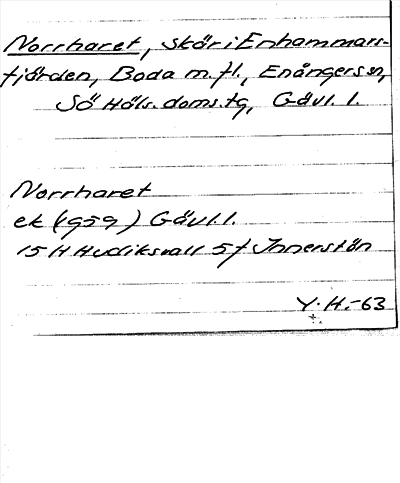 Norrharet, skär i Enhammars-
fjärden, Boda m.fl., Enångers sn,
Sö Häls. doms. tg, Gävl. l.
Norrharet
ek (1959) Gävl. l.
15 H Hudiksvall 5 f Innerstön
Y. H. -63